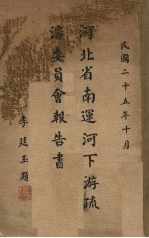 民國二十五年十月
河北省南運河下游疏
濬委員會報告書
李廷玉題